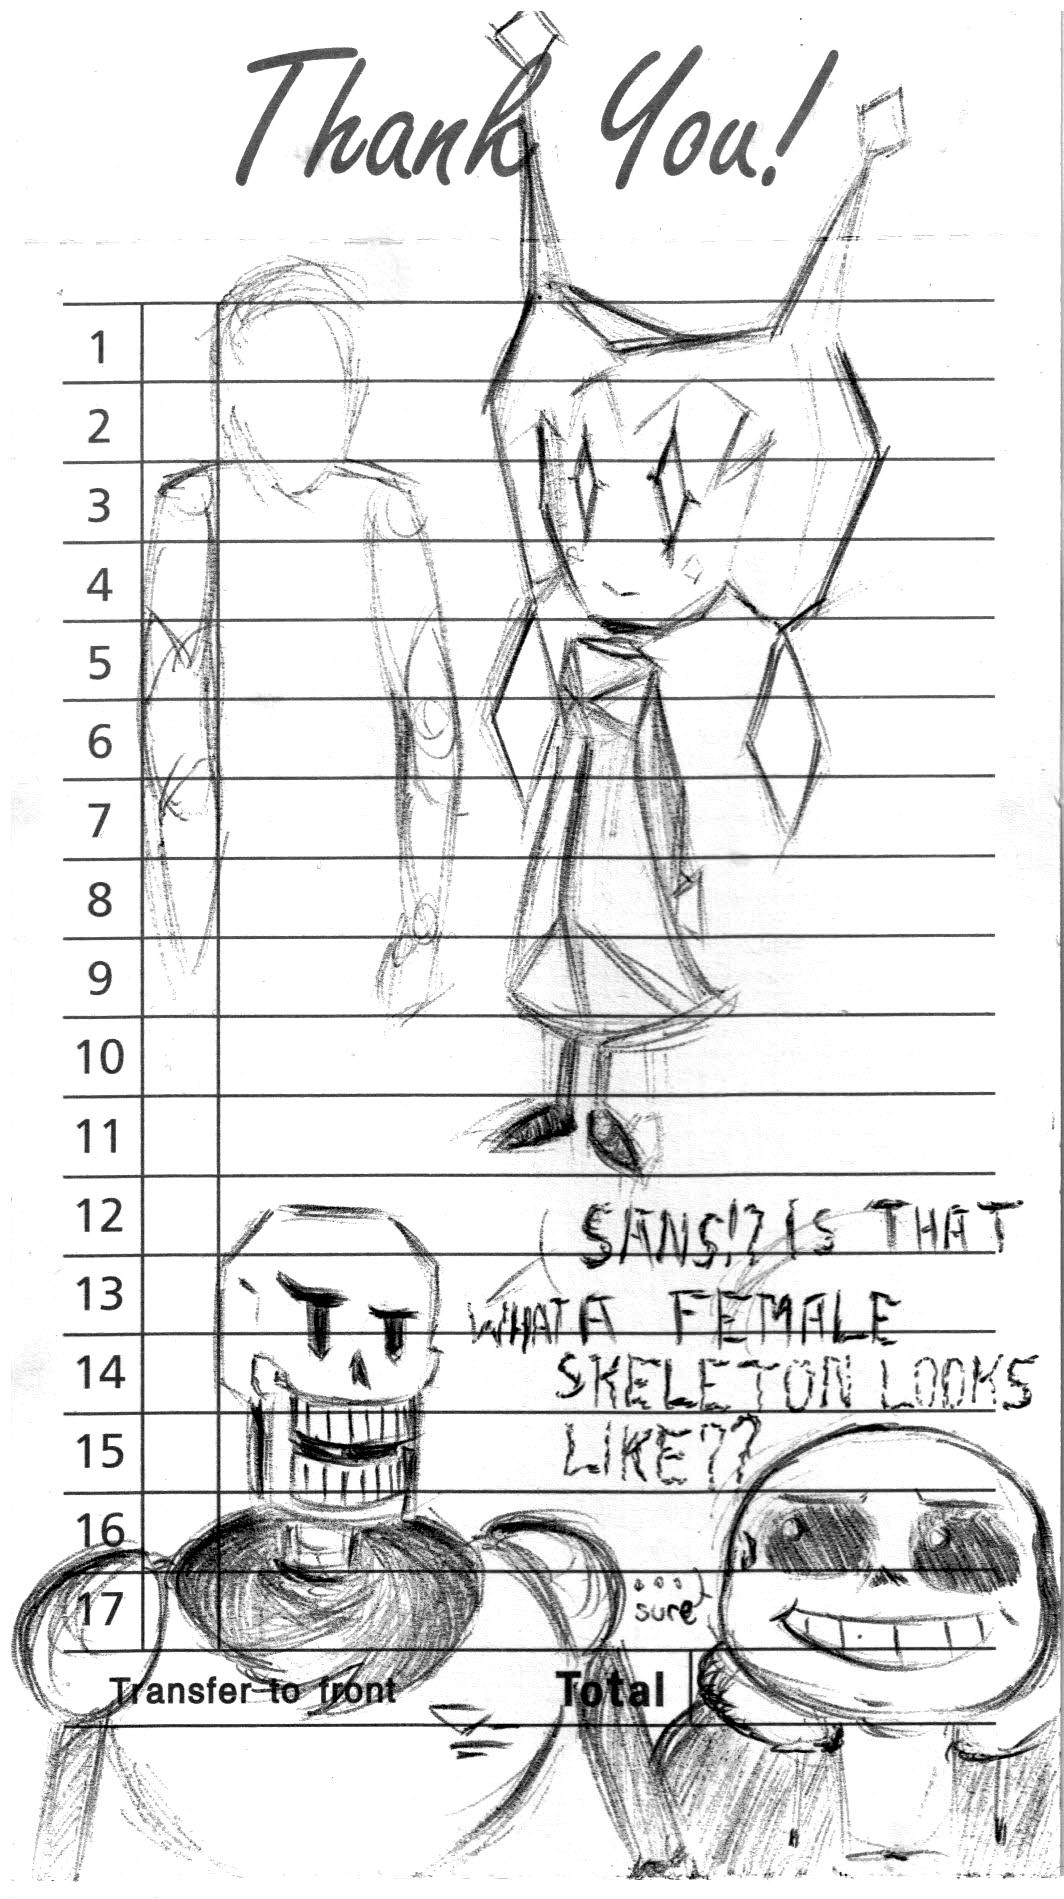 Thank You!
1
2
3
4
5
6
7
8
9
10
11
12
SANS!? IS THAT
13
WHAT A FEMALE
14
SKELETON LOOKS
15
LIKE??
16
17
...
sure
Transfer to front
Total